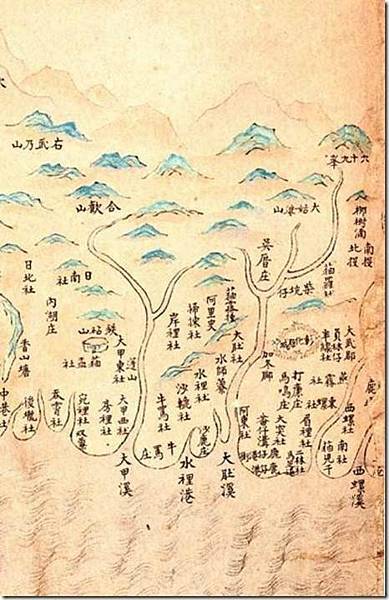 右武乃山
六十九峯
合歡山
大姑婆山
南投
北投
柳樹湳
吳厝庄
猫羅社
猫霧捒
阿里史
掃捒社
岸裡社
大肚社
水師藔
水裡社
沙轆社
牛罵社
沙轆庄
牛罵庄
日北社
日南社
內湖庄
香山塘
後壠社
吞霄社
宛裡社
房裡社
双藔
大甲東社
大甲西社
彰化縣城
大武郡
員林仔
燕霧
東螺社
西螺社
南社
猫兒干
打廉庄
馬鳴庄
阿束社
大突社
眉裡社
二林社
馬芝遴
大甲溪
水裡港
大肚溪
西螺溪